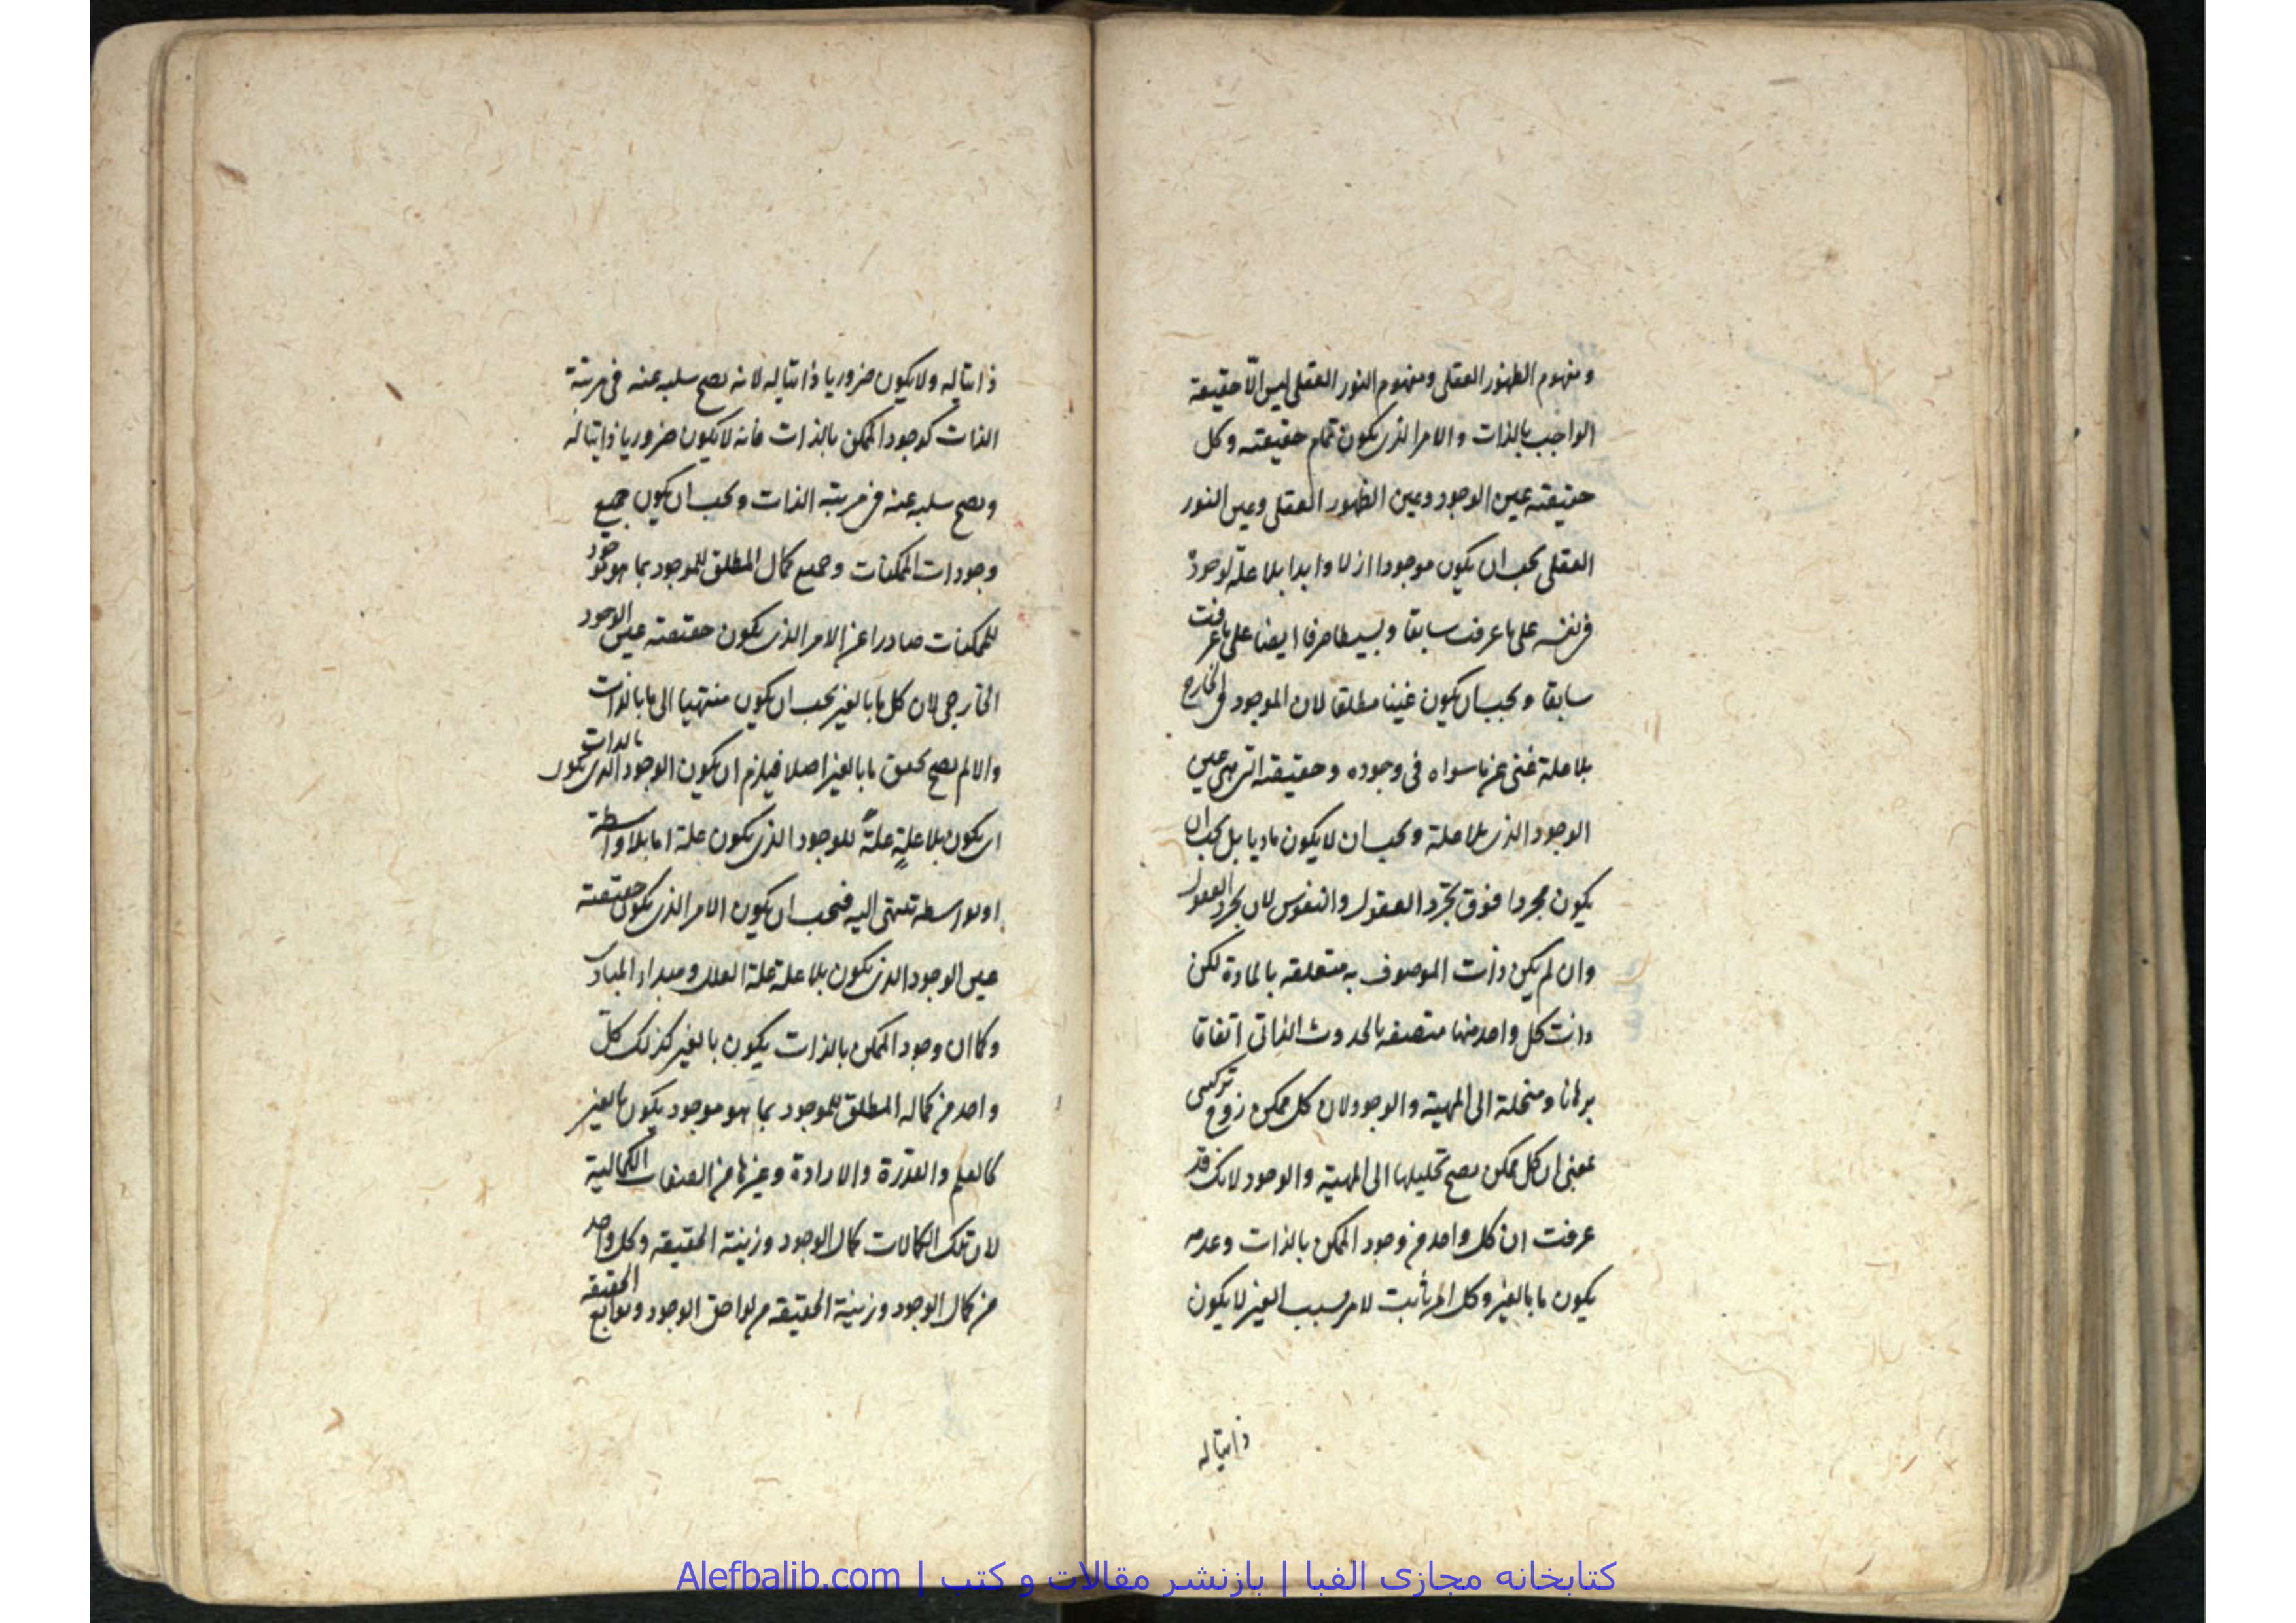 ومفهوم الظهور العقلی ومفهوم النور العقلی لیس الّا حقیقة
الواجب بالذات والامر الذی یکون تمام حقیقته وکل
حقیقته عین الوجود وعین الظهور العقلی وعین النور
العقلی یجب ان یکون موجودا ازلا وابدا بلا علة لوجوده
فی نفسه علی ما عرفت سابقا وبسیطا صرفا ایضا علی ما عرفت
سابقا ویجب ان یکون غنیا مطلقا لان الموجود فی الخارج
بلا علة غنی عن ما سواه فی وجوده وحقیقته التی هی عین
الوجود الذی بلا علة ویجب ان لا یکون مادیا بل یجب ان
یکون مجردا فوق تجرّد العقول والنفوس لان تجرد العقول
وان لم یکن ذات الموصوف به متعلقه بالمادة لکن
ذات کل واحد منها متصفه بالحدوث الذاتی اتفاقا
برهانا ومنحلة الی المهیة والوجود لان کل ممکن زوج ترکیبی
بمعنی ان کل ممکن یصح تحلیلها الی المهیة والوجود لانک قد
عرفت ان کل واحد من وجود الممکن بالذات وعدمه
یکون ما بالغیر وکل امر ثابت لامر بسبب الغیر لا یکون
ذاتیا له
ذاتیا له ولا یکون ضروریا ذاتیا له لانه یصح سلبه عنه فی مرتبة
الذات کوجود الممکن بالذات فانه لا یکون ضروریا ذاتیا له
ویصح سلبه عنه فی مرتبة الذات ویجب ان یکون جمیع
وجودات الممکنات وجمیع کمال المطلق للموجود بما هو موجود
للممکنات صادرا عن الامر الذی یکون حقیقته عین الوجود
الخارجی لان کل ما بالغیر یجب ان یکون منتهیا الی ما بالذات
والا لم یصح تحقق ما بالغیر اصلا فیلزم ان یکون الوجود الذی یکون بالذات
ای یکون بلا علةٍ علةً للوجود الذی یکون علة اما بلا واسطة
او بواسطه تنتهی الیه فیجب ان یکون الامر الذی یکون حقیقته
عین الوجود الذی یکون بلا علة علة العلل ومبداء المبادی
وکما ان وجود الممکن بالذات یکون بالغیر کذلک کلّ
واحد من کماله المطلق للموجود بما هو موجود یکون بالغیر
کالعلم والقدرة والارادة وغیرها من الصفات الکمالیة
لان تلک الکمالات کمال الوجود وزینة الحقیقه وکل واحد
من کمال الوجود وزینة الحقیقه من لواحق الوجود وتوابع الحقیقه
کتابخانه مجازی الفبا | بازنشر مقالات و کتب | Alefbalib.com